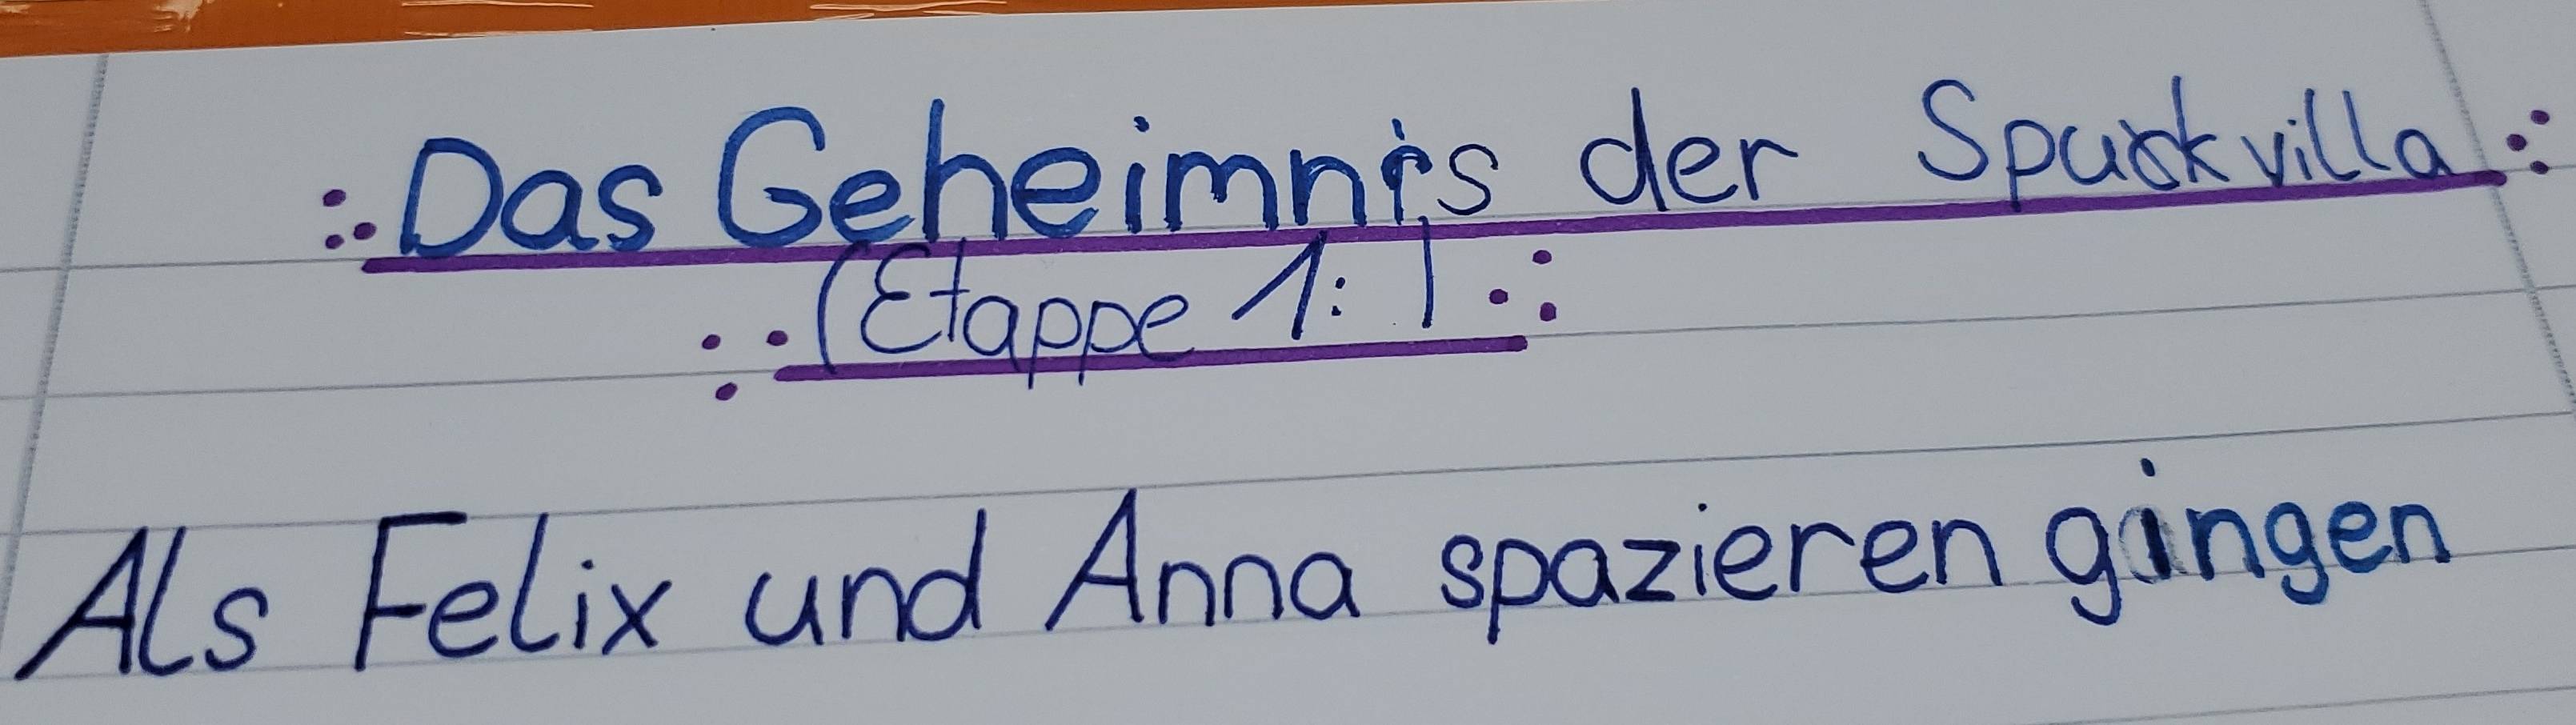 Das Geheimnis der Spukvilla
(Etappe 1: )
Als Felix und Anna spazieren gingen